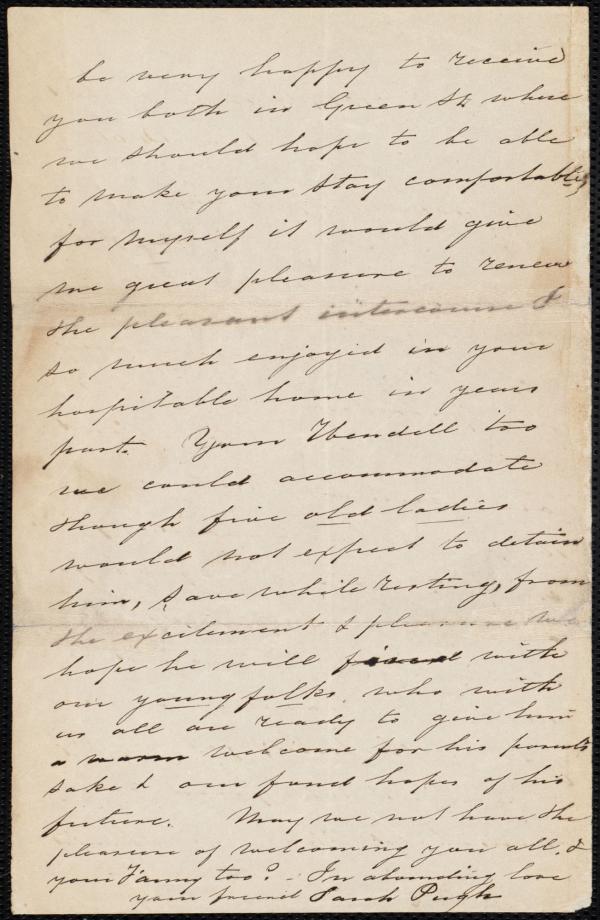 be very happy to receive
you both in Green St. where
we should hope to be able
to make your stay comfortable,
for myself it would give
me great pleasure to renew
the pleasant intercourse I
so much enjoyed in your
hospitable home in years
past. Your Wendell too
we could accommodate
though five old ladies
would not expect to detain
him, save while resting, from
the excitement & pleasure we
hope he will find with
our young folks, who with
us all are ready to give him
a warm welcome for his parents
sake & our fond hopes of his
future. May we not have the
pleasure of welcoming you all, &
your Fanny too? - In abounding love
your friend Sarah Pugh